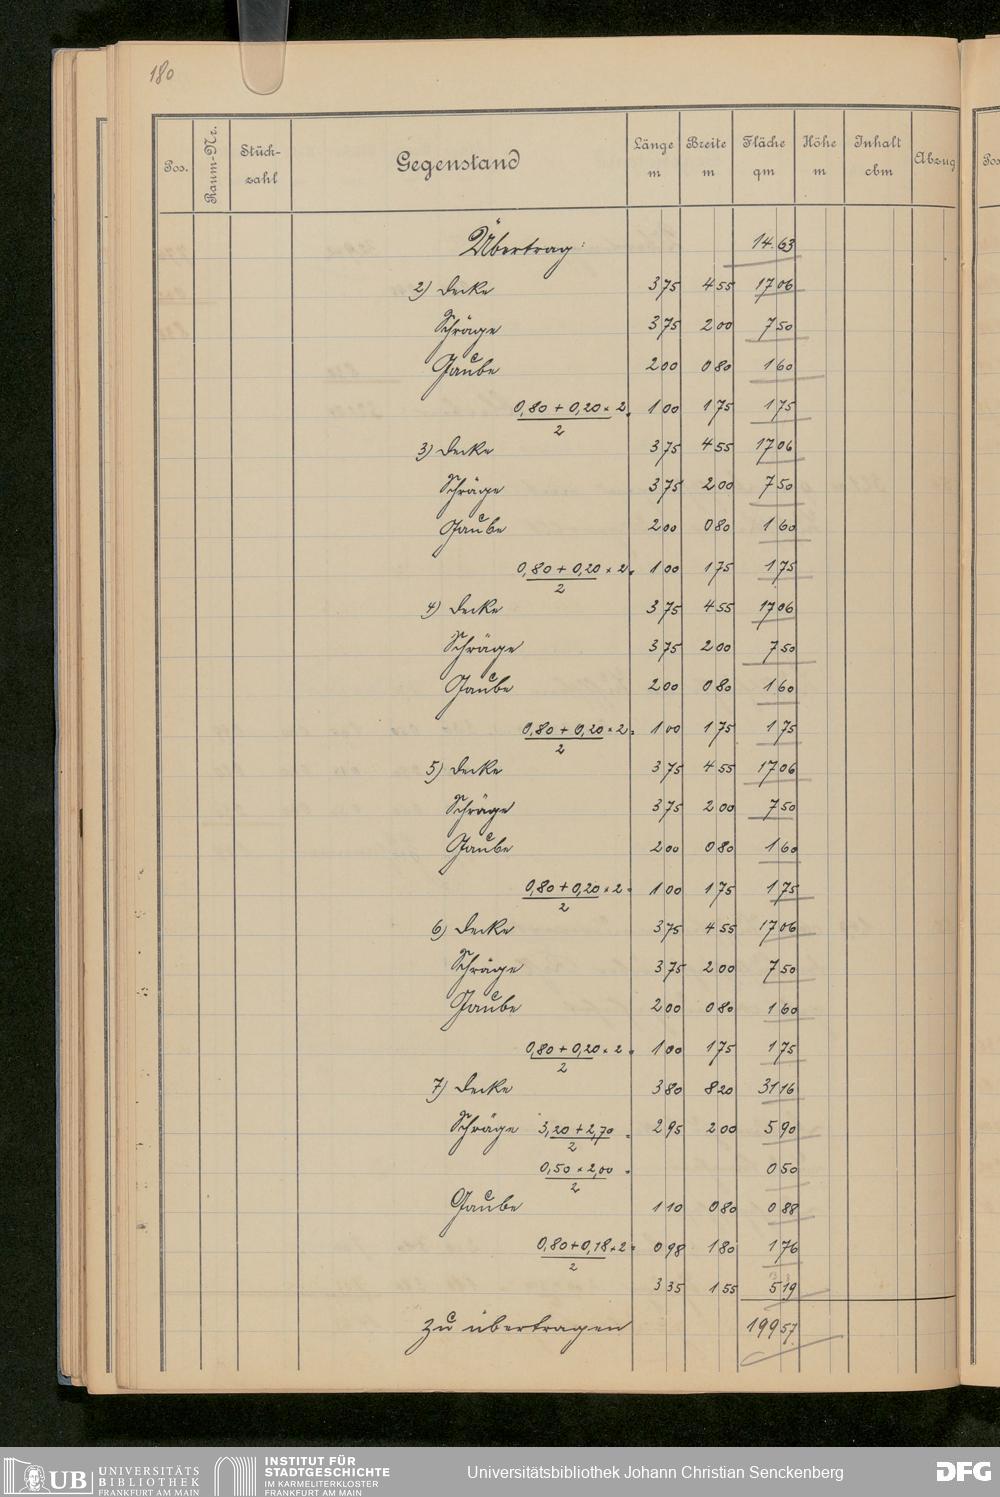 180
Pos. Raum-Nr. Stück-zahl Gegenstand Länge m Breite m Fläche qm Höhe m Inhalt cbm Abzug Pos
Übertrag: 14.63
2) Decke 3 75 4 55 17 06
Schräge 3 75 2 00 7 50
Gaube 2 00 0 80 1 60
0,80 + 0,20 × 2 / 2 = 1 00 1 75 1 75
3) Decke 3 75 4 55 17 06
Schräge 3 75 2 00 7 50
Gaube 2 00 0 80 1 60
0,80 + 0,20 × 2 / 2 = 1 00 1 75 1 75
4) Decke 3 75 4 55 17 06
Schräge 3 75 2 00 7 50
Gaube 2 00 0 80 1 60
0,80 + 0,20 × 2 / 2 = 1 00 1 75 1 75
5) Decke 3 75 4 55 17 06
Schräge 3 75 2 00 7 50
Gaube 2 00 0 80 1 60
0,80 + 0,20 × 2 / 2 = 1 00 1 75 1 75
6) Decke 3 75 4 55 17 06
Schräge 3 75 2 00 7 50
Gaube 2 00 0 80 1 60
0,80 + 0,20 × 2 / 2 = 1 00 1 75 1 75
7) Decke 3 80 8 20 31 16
Schräge 3,20 + 2,70 / 2 = 2 95 2 00 5 90
0,50 × 2,00 / 2 = 0 50
Gaube 1 10 0 80 0 88
0,80 + 0,18 × 2 / 2 = 0 98 1 80 1 76
3 35 1 55 5 19
Zu übertragen 199 57
UB UNIVERSITÄTS BIBLIOTHEK FRANKFURT AM MAIN
INSTITUT FÜR STADTGESCHICHTE IM KARMELITERKLOSTER FRANKFURT AM MAIN
Universitätsbibliothek Johann Christian Senckenberg
DFG